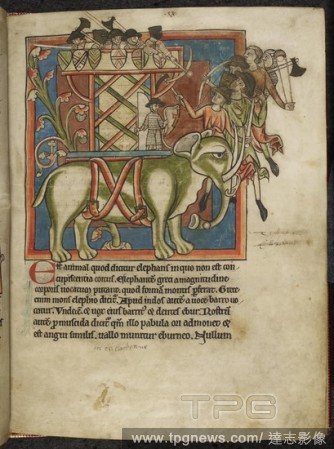 Est animal quod dicitur elephans in quo non est con-
cupiscentia coitus. Elephantē greci a magnitudine
corporis uocatum putant, quod formā montis preferat. Grece
enim mons elephio dicitur. Apud indos autē a uoce barro uo-
catur. Vnde & uox eius barrit' & dentes ebur. Rostrū
autē pmuscida dicit' qm illo pabula ori admouet &
est angui similis, uallo munitur eburneo. Nullum
TPG
www.tpgnews.com / 達志影像